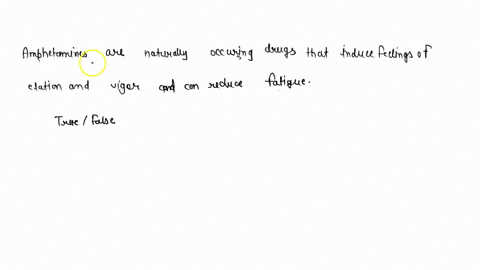 Amphetamines are naturally occuring drugs that induce feelings of
elation and vigor and can reduce fatigue.
True / False